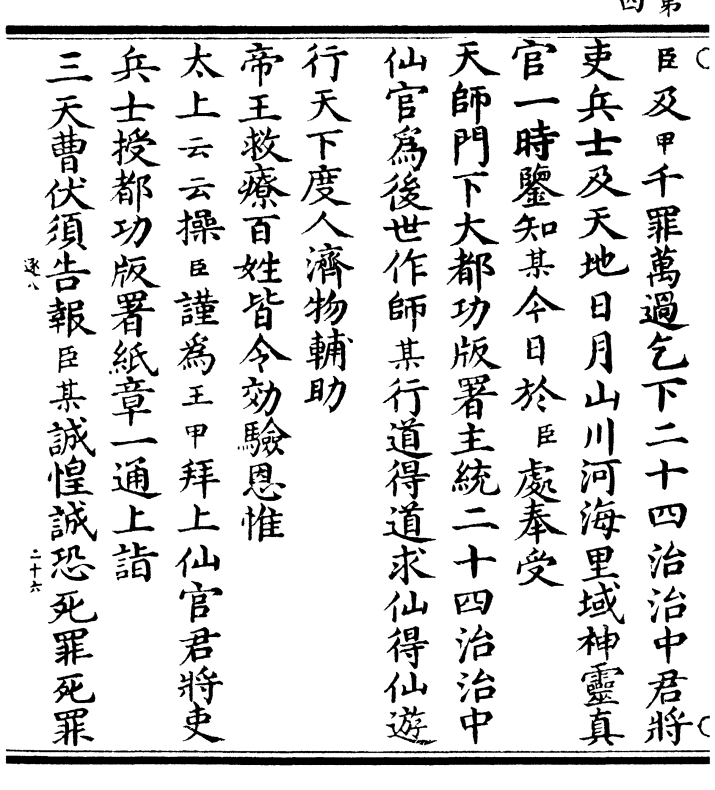 第四
臣及甲千罪萬過乞下二十四治治中君將
吏兵士及天地日月山川河海里域神靈真
官一時鑒知某今日於臣處奉受
天師門下大都功版署主統二十四治治中
仙官爲後世作師某行道得道求仙得仙遊
行天下度人濟物輔助
帝王救療百姓皆令効驗恩惟
太上云云操臣謹爲王甲拜上仙官君將吏
兵士授都功版署紙章一通上詣
三天曹伏須告報臣某誠惶誠恐死罪死罪
逐八
二十六